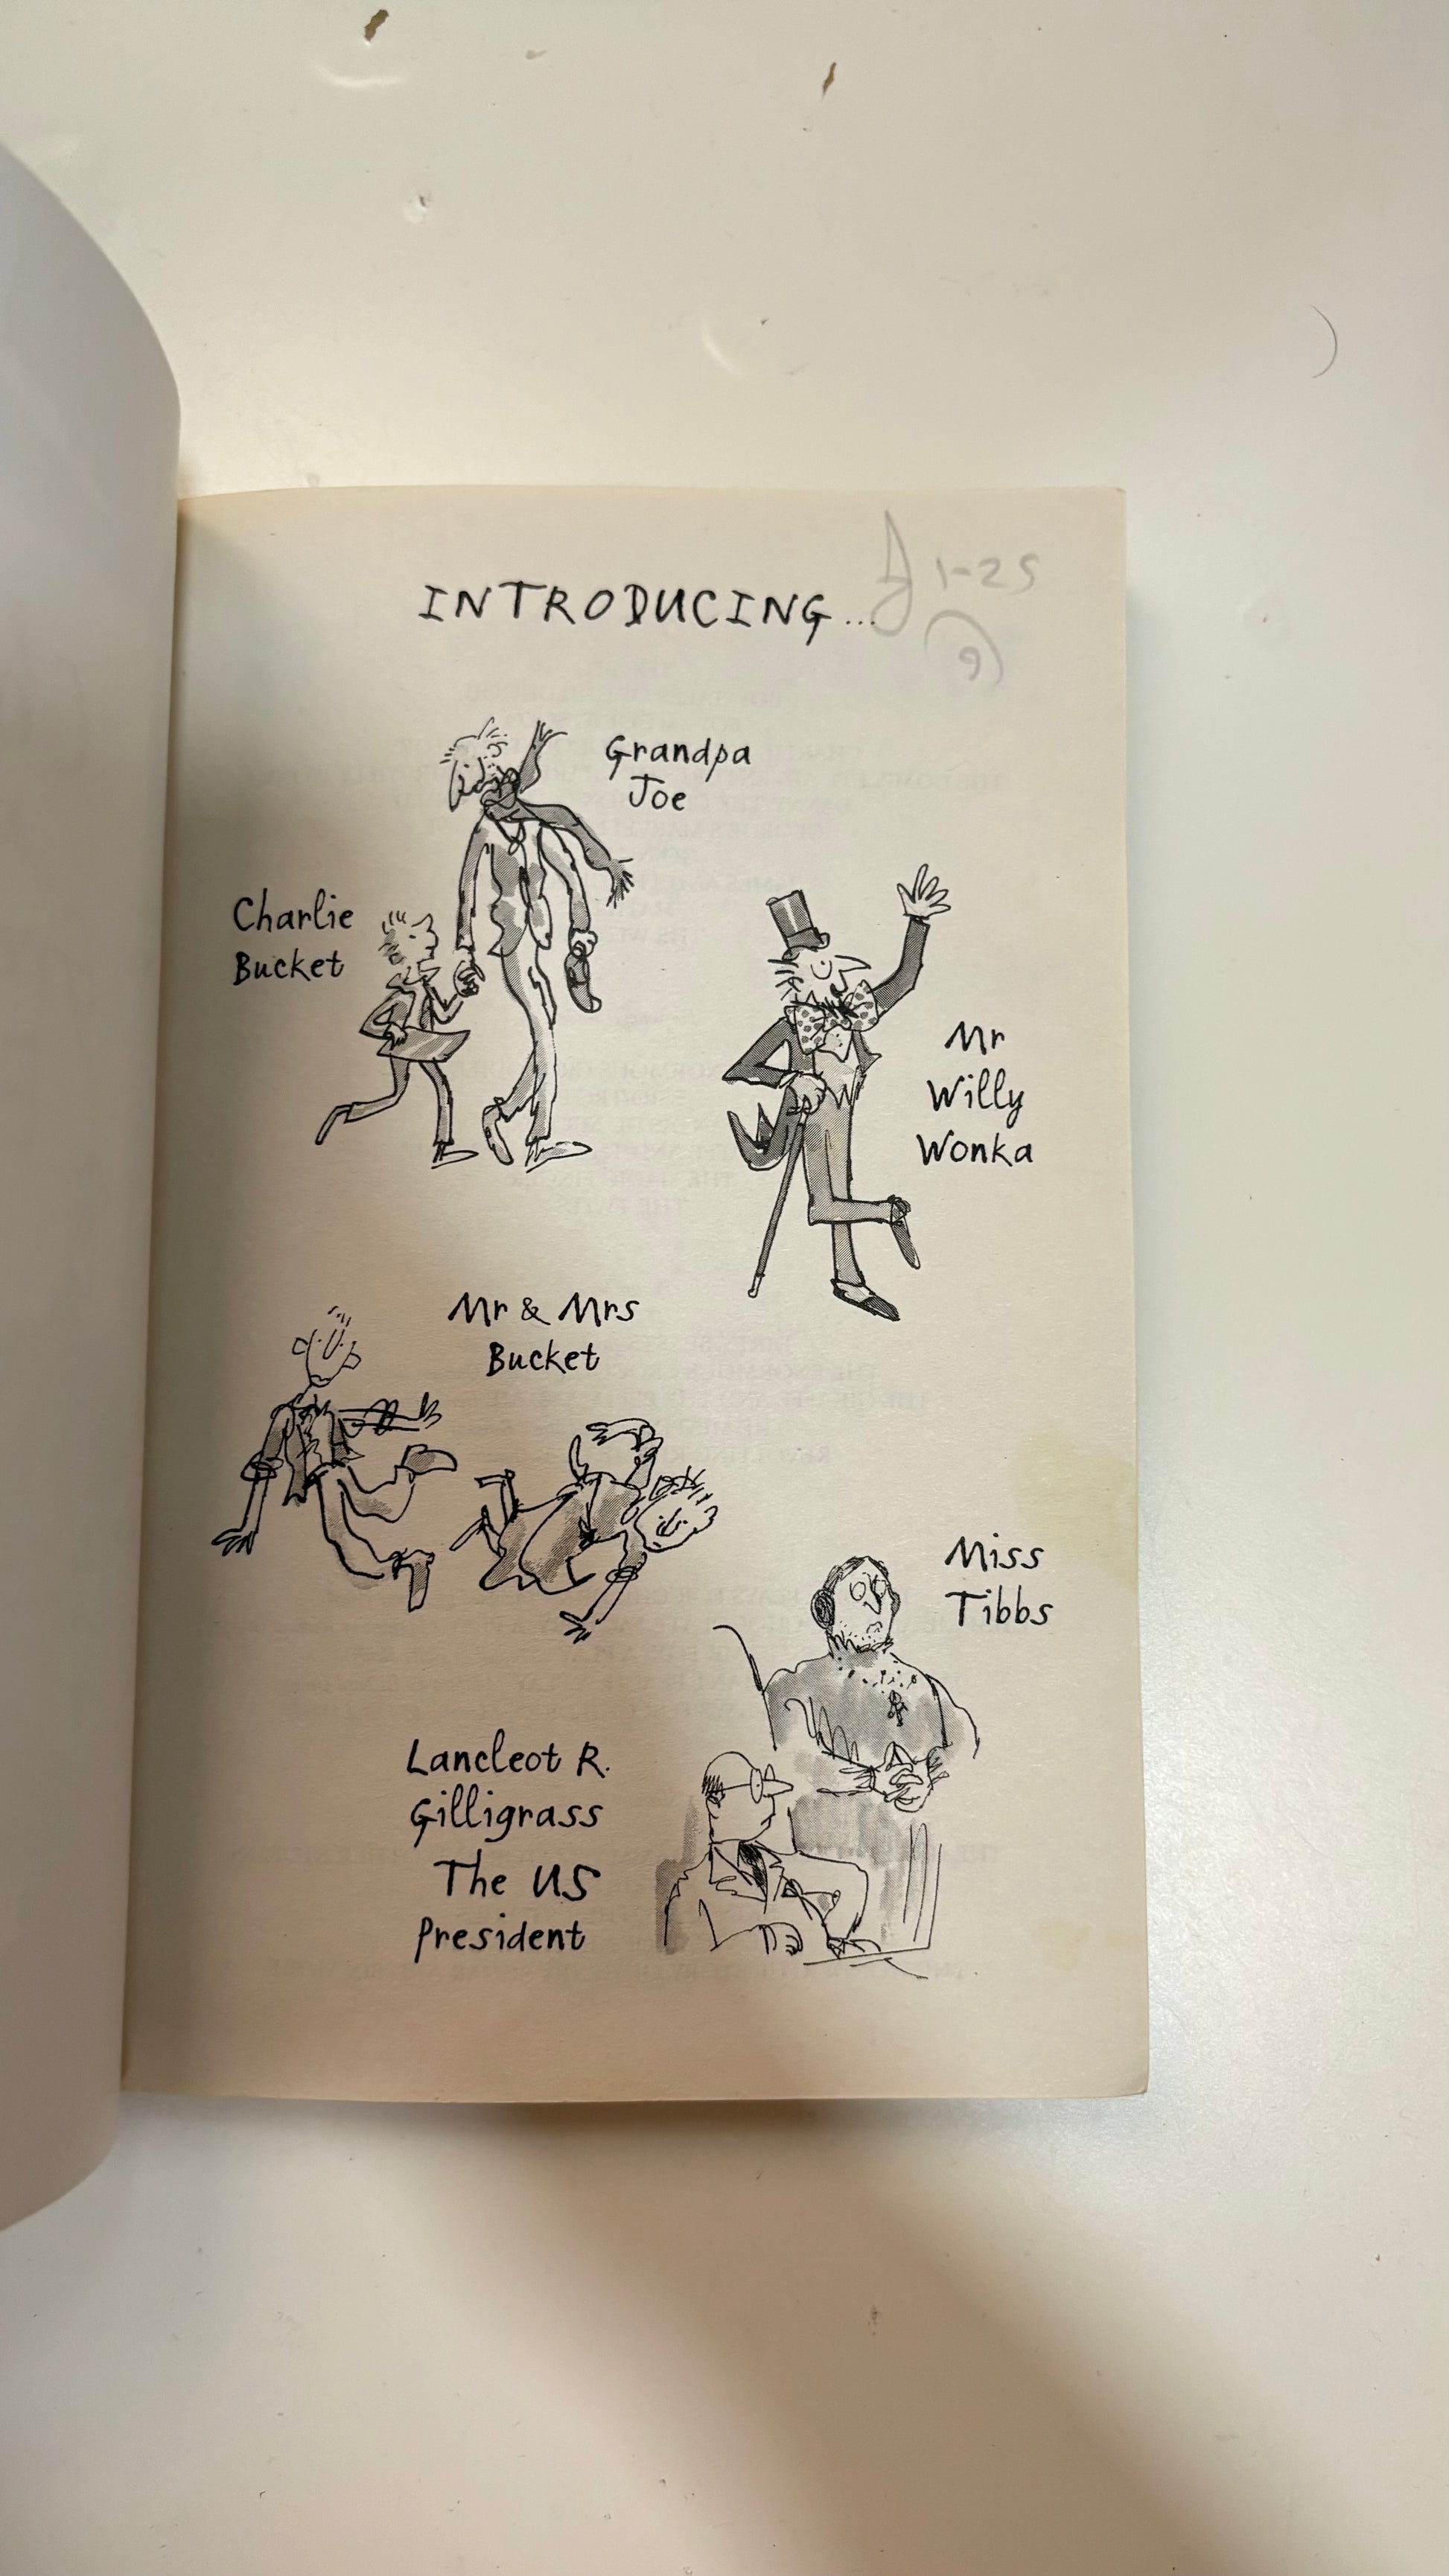 INTRODUCING...
1-25
Grandpa
Joe
Charlie
Bucket
Mr
Willy
Wonka
Mr & Mrs
Bucket
Miss
Tibbs
Lancleot R.
Gilligrass
The US
President